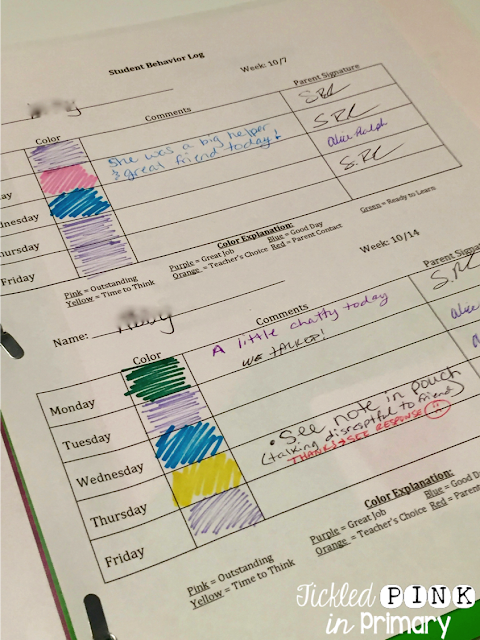 Student Behavior Log
Week: 10/7
Color
Comments
Parent Signature
She was a big helper
& great friend today!
SRC
SRC
Alice Ralph
SRC
Thursday
Friday
Color Explanation:
Pink = Outstanding
Purple = Great Job
Blue = Good Day
Green = Ready to Learn
Yellow = Time to Think
Orange = Teacher's Choice
Red = Parent Contact
Week: 10/14
Name:
Color
Comments
Monday
A little chatty today
WE TALKED!
SRC
Tuesday
Wednesday
• See note in pouch
(talking disruptful to friend)
THANKS! SEE RESPONSE
Thursday
Friday
Color Explanation:
Pink = Outstanding
Purple = Great Job
Blue = Good Day
Yellow = Time to Think
Orange = Teacher's Choice
Red = Parent
Tickled PINK
in Primary